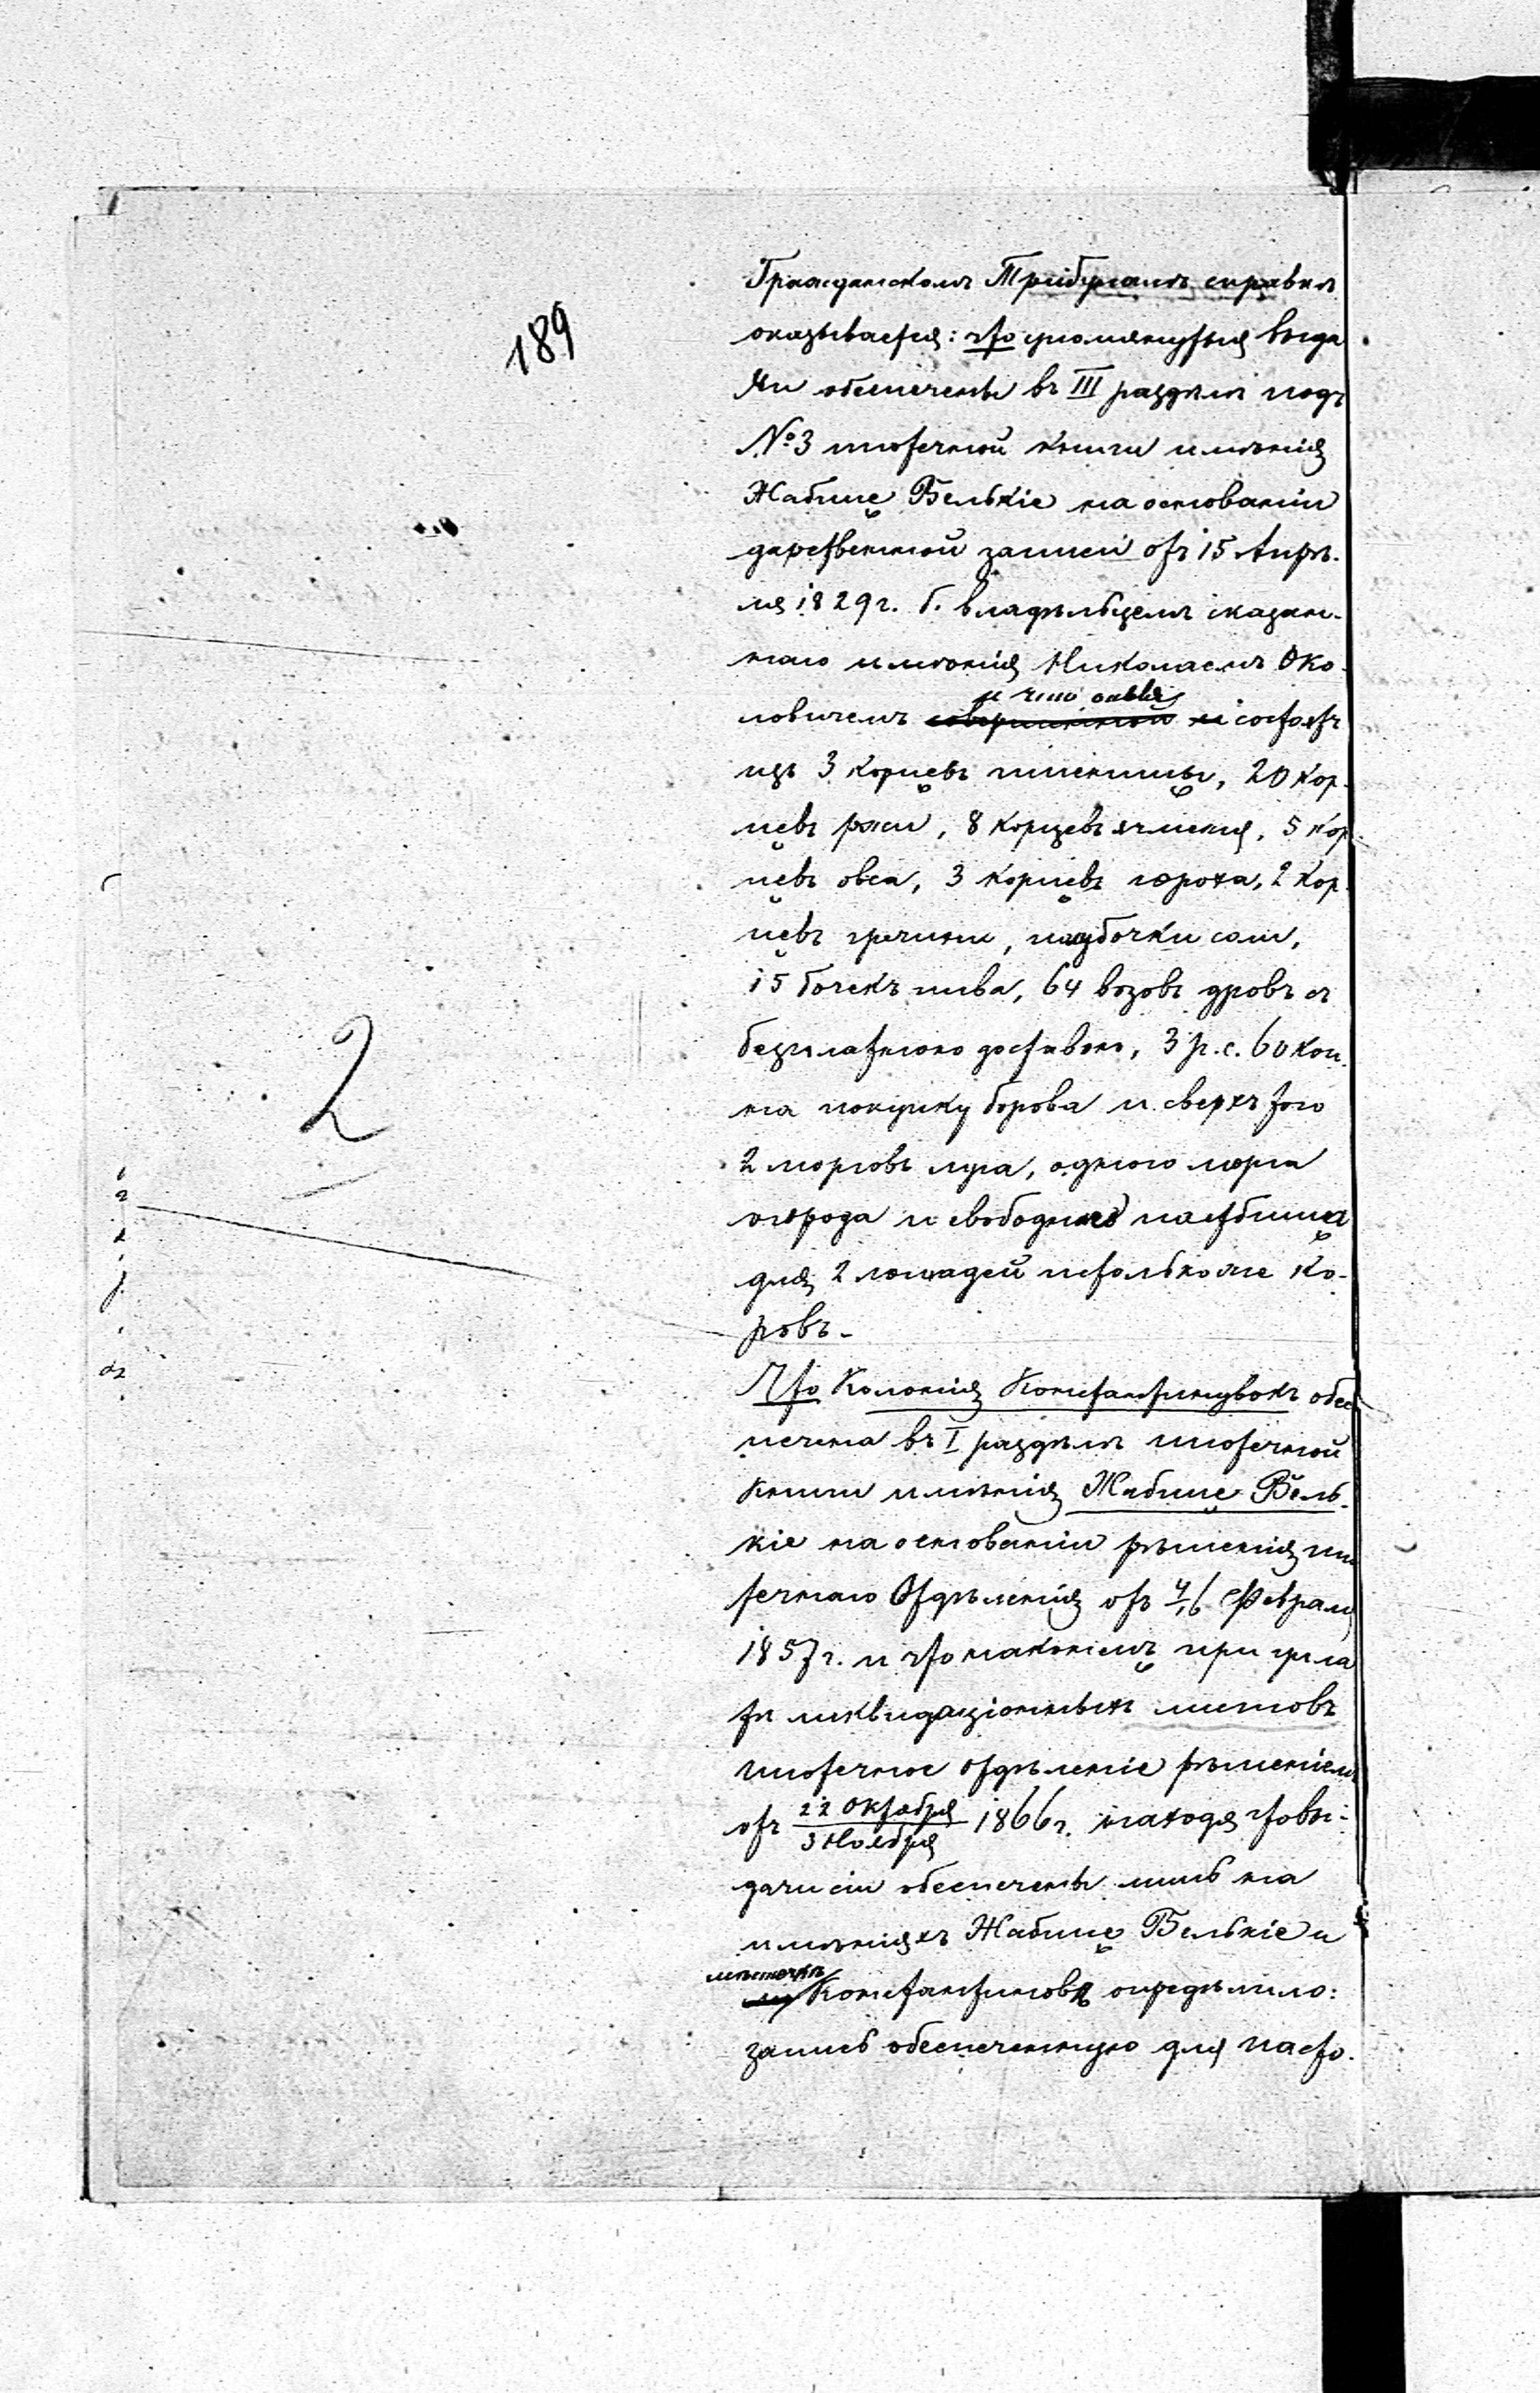 189
Гражданскомъ Трибуналѣ справки
оказывается: что упомянутыя выда
чи обеспечены въ III раздѣлѣ подъ
№ 3 ипотечной книги имѣнія
Жабице Велькіе на основаніи
дарственной записи отъ 15 Апрѣ-
ля 1829 г. б. владѣльцемъ сказан-
наго имѣнія Николаемъ Око-
и что онѣ
ловичемъ совершенной состоятъ
изъ 3 корцевъ пшеницы, 20 кор-
цевъ ржи, 8 корцевъ ячменя, 5 кор
цевъ овса, 3 корцевъ гороха, 2 кор-
цевъ гречихи, полубочки соли,
15 бочекъ пива, 64 возовъ дровъ съ
безплатною доставкою, 3 р. с. 60 коп.
на покупку борова и сверхъ того
2 морговъ луга, одного морга
огорода и свободнаго пастбища
для 2 лошадей и столькоже ко-
ровъ.-
Что Колонія Константинувокъ обес
печена въ I раздѣлѣ ипотечной
книги имѣнія Жабице Вель-
кіе на основаніи рѣшенія ипо
течнаго Отдѣленія отъ 4/16 Февраля
1857 г. и что наконецъ при упла
тѣ ликвидаціонныхъ листовъ
ипотечное отдѣленіе рѣшеніемъ
отъ 22 Октября / 3 Ноября 1866 г. находя что вы-
дачи сіи обеспечены лишь на
имѣніяхъ Жабице Велькіе и
мѣстечкѣ
Константиновѣ опредѣлило:
запись обеспеченную для насто-
2